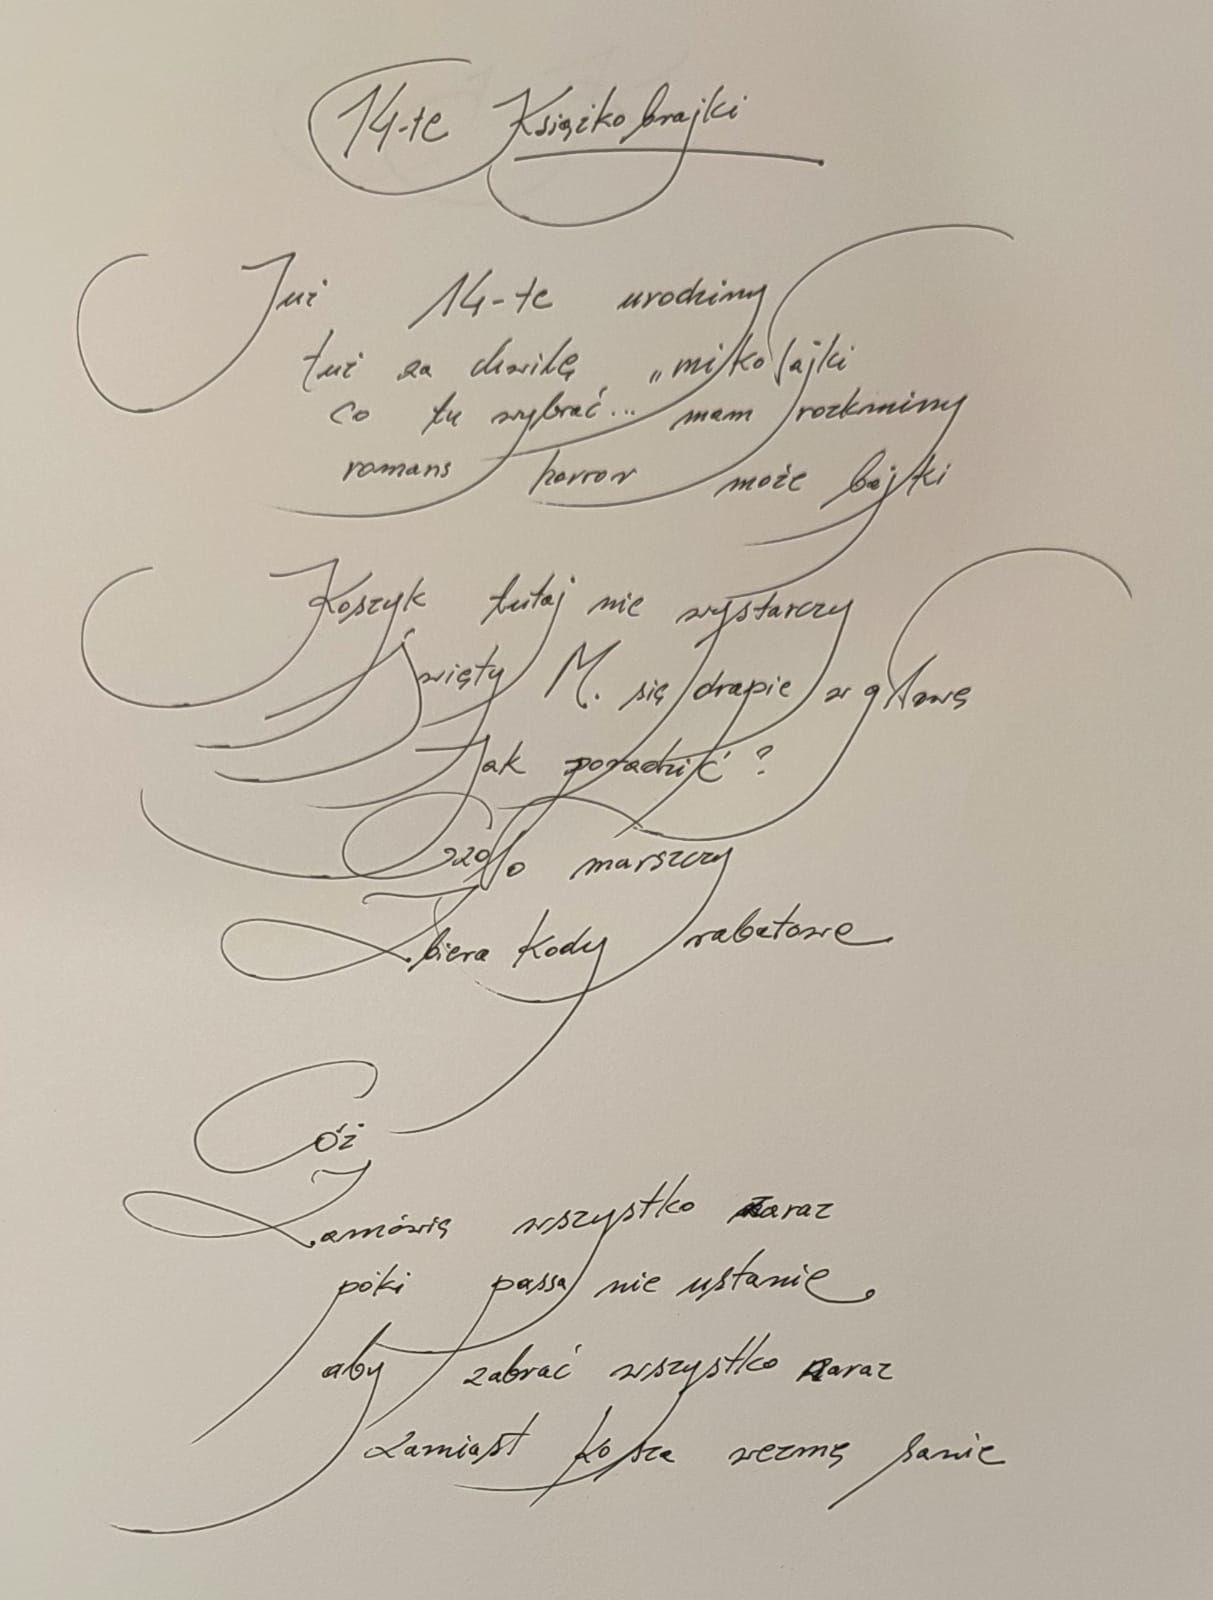 14-te Książkobrajki
Już 14-te urodziny
tuż za chwilę „mikołajki
co tu wybrać... mam rozkminy
romans horror może bajki
Koszyk tutaj nie wystarczy
Święty M. się drapie w głowę
Jak poradzić?
Czoło marszczy
Zbiera kody rabatowe
Cóż
Zamówię wszystko zaraz
póki passa nie ustanie
aby zabrać wszystko zaraz
zamiast kosza wezmę sanie